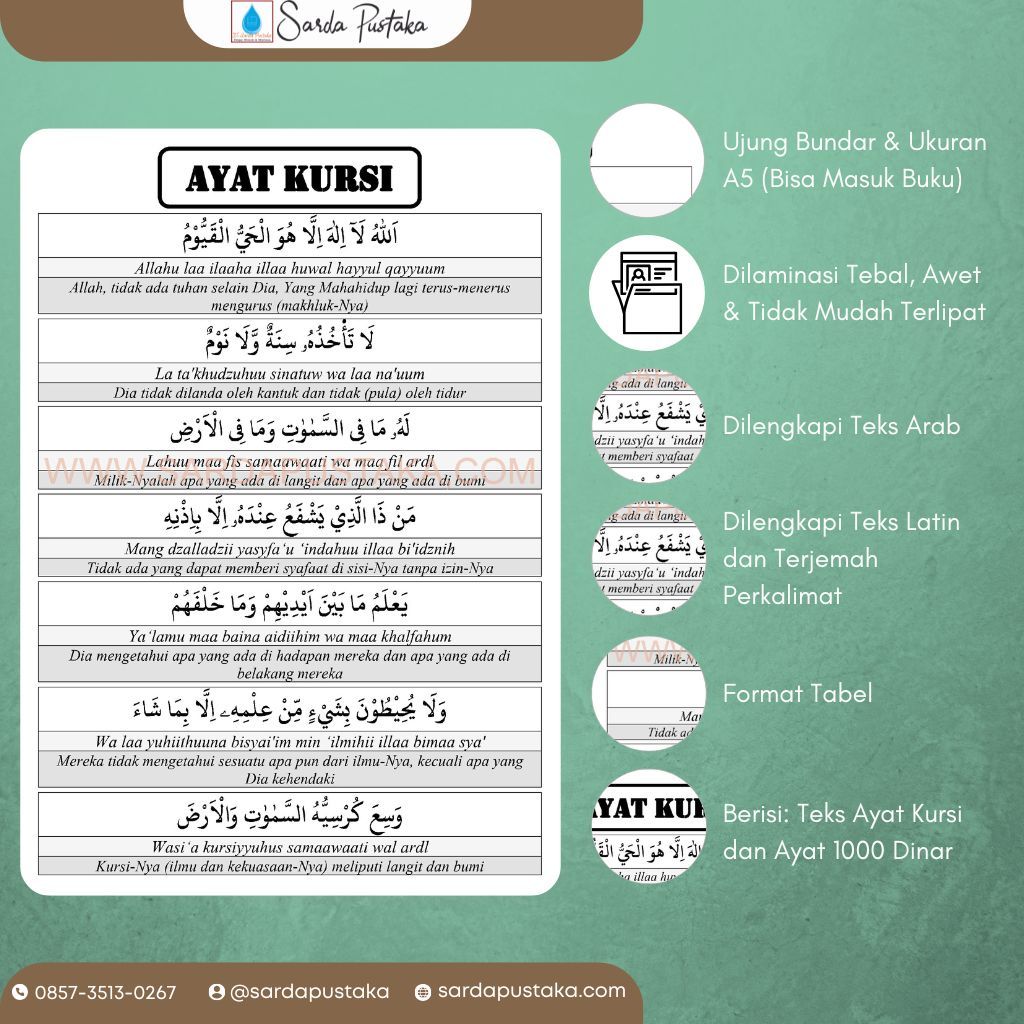 Sarda Pustaka
AYAT KURSI
اَللّٰهُ لَآ اِلٰهَ اِلَّا هُوَ الْحَيُّ الْقَيُّوْمُ
Allahu laa ilaaha illaa huwal hayyul qayyuum
Allah, tidak ada tuhan selain Dia, Yang Mahahidup lagi terus-menerus
mengurus (makhluk-Nya)
لَا تَأْخُذُهٗ سِنَةٌ وَّلَا نَوْمٌ
La ta'khudzuhuu sinatuw wa laa na'uum
Dia tidak dilanda oleh kantuk dan tidak (pula) oleh tidur
لَهٗ مَا فِى السَّمٰوٰتِ وَمَا فِى الْاَرْضِ
Lahuu maa fis samaawaati wa maa fil ardl
WWW.SARDAPUSTAKA.COM
Milik-Nyalah apa yang ada di langit dan apa yang ada di bumi
مَنْ ذَا الَّذِيْ يَشْفَعُ عِنْدَهٗ اِلَّا بِاِذْنِهٖ
Mang dzalladzii yasyfa‘u ‘indahuu illaa bi'idznih
Tidak ada yang dapat memberi syafaat di sisi-Nya tanpa izin-Nya
يَعْلَمُ مَا بَيْنَ اَيْدِيْهِمْ وَمَا خَلْفَهُمْ
Ya‘lamu maa baina aidiihim wa maa khalfahum
Dia mengetahui apa yang ada di hadapan mereka dan apa yang ada di
belakang mereka
وَلَا يُحِيْطُوْنَ بِشَيْءٍ مِّنْ عِلْمِهٖٓ اِلَّا بِمَا شَاءَ
Wa laa yuhiithuuna bisyai'im min ‘ilmihii illaa bimaa sya'
Mereka tidak mengetahui sesuatu apa pun dari ilmu-Nya, kecuali apa yang
Dia kehendaki
وَسِعَ كُرْسِيُّهُ السَّمٰوٰتِ وَالْاَرْضَ
Wasi‘a kursiyyuhus samaawaati wal ardl
Kursi-Nya (ilmu dan kekuasaan-Nya) meliputi langit dan bumi
Ujung Bundar & Ukuran
A5 (Bisa Masuk Buku)
Dilaminasi Tebal, Awet
& Tidak Mudah Terlipat
Dilengkapi Teks Arab
Dilengkapi Teks Latin
dan Terjemah
Perkalimat
Format Tabel
Berisi: Teks Ayat Kursi
dan Ayat 1000 Dinar
0857-3513-0267
@sardapustaka
sardapustaka.com